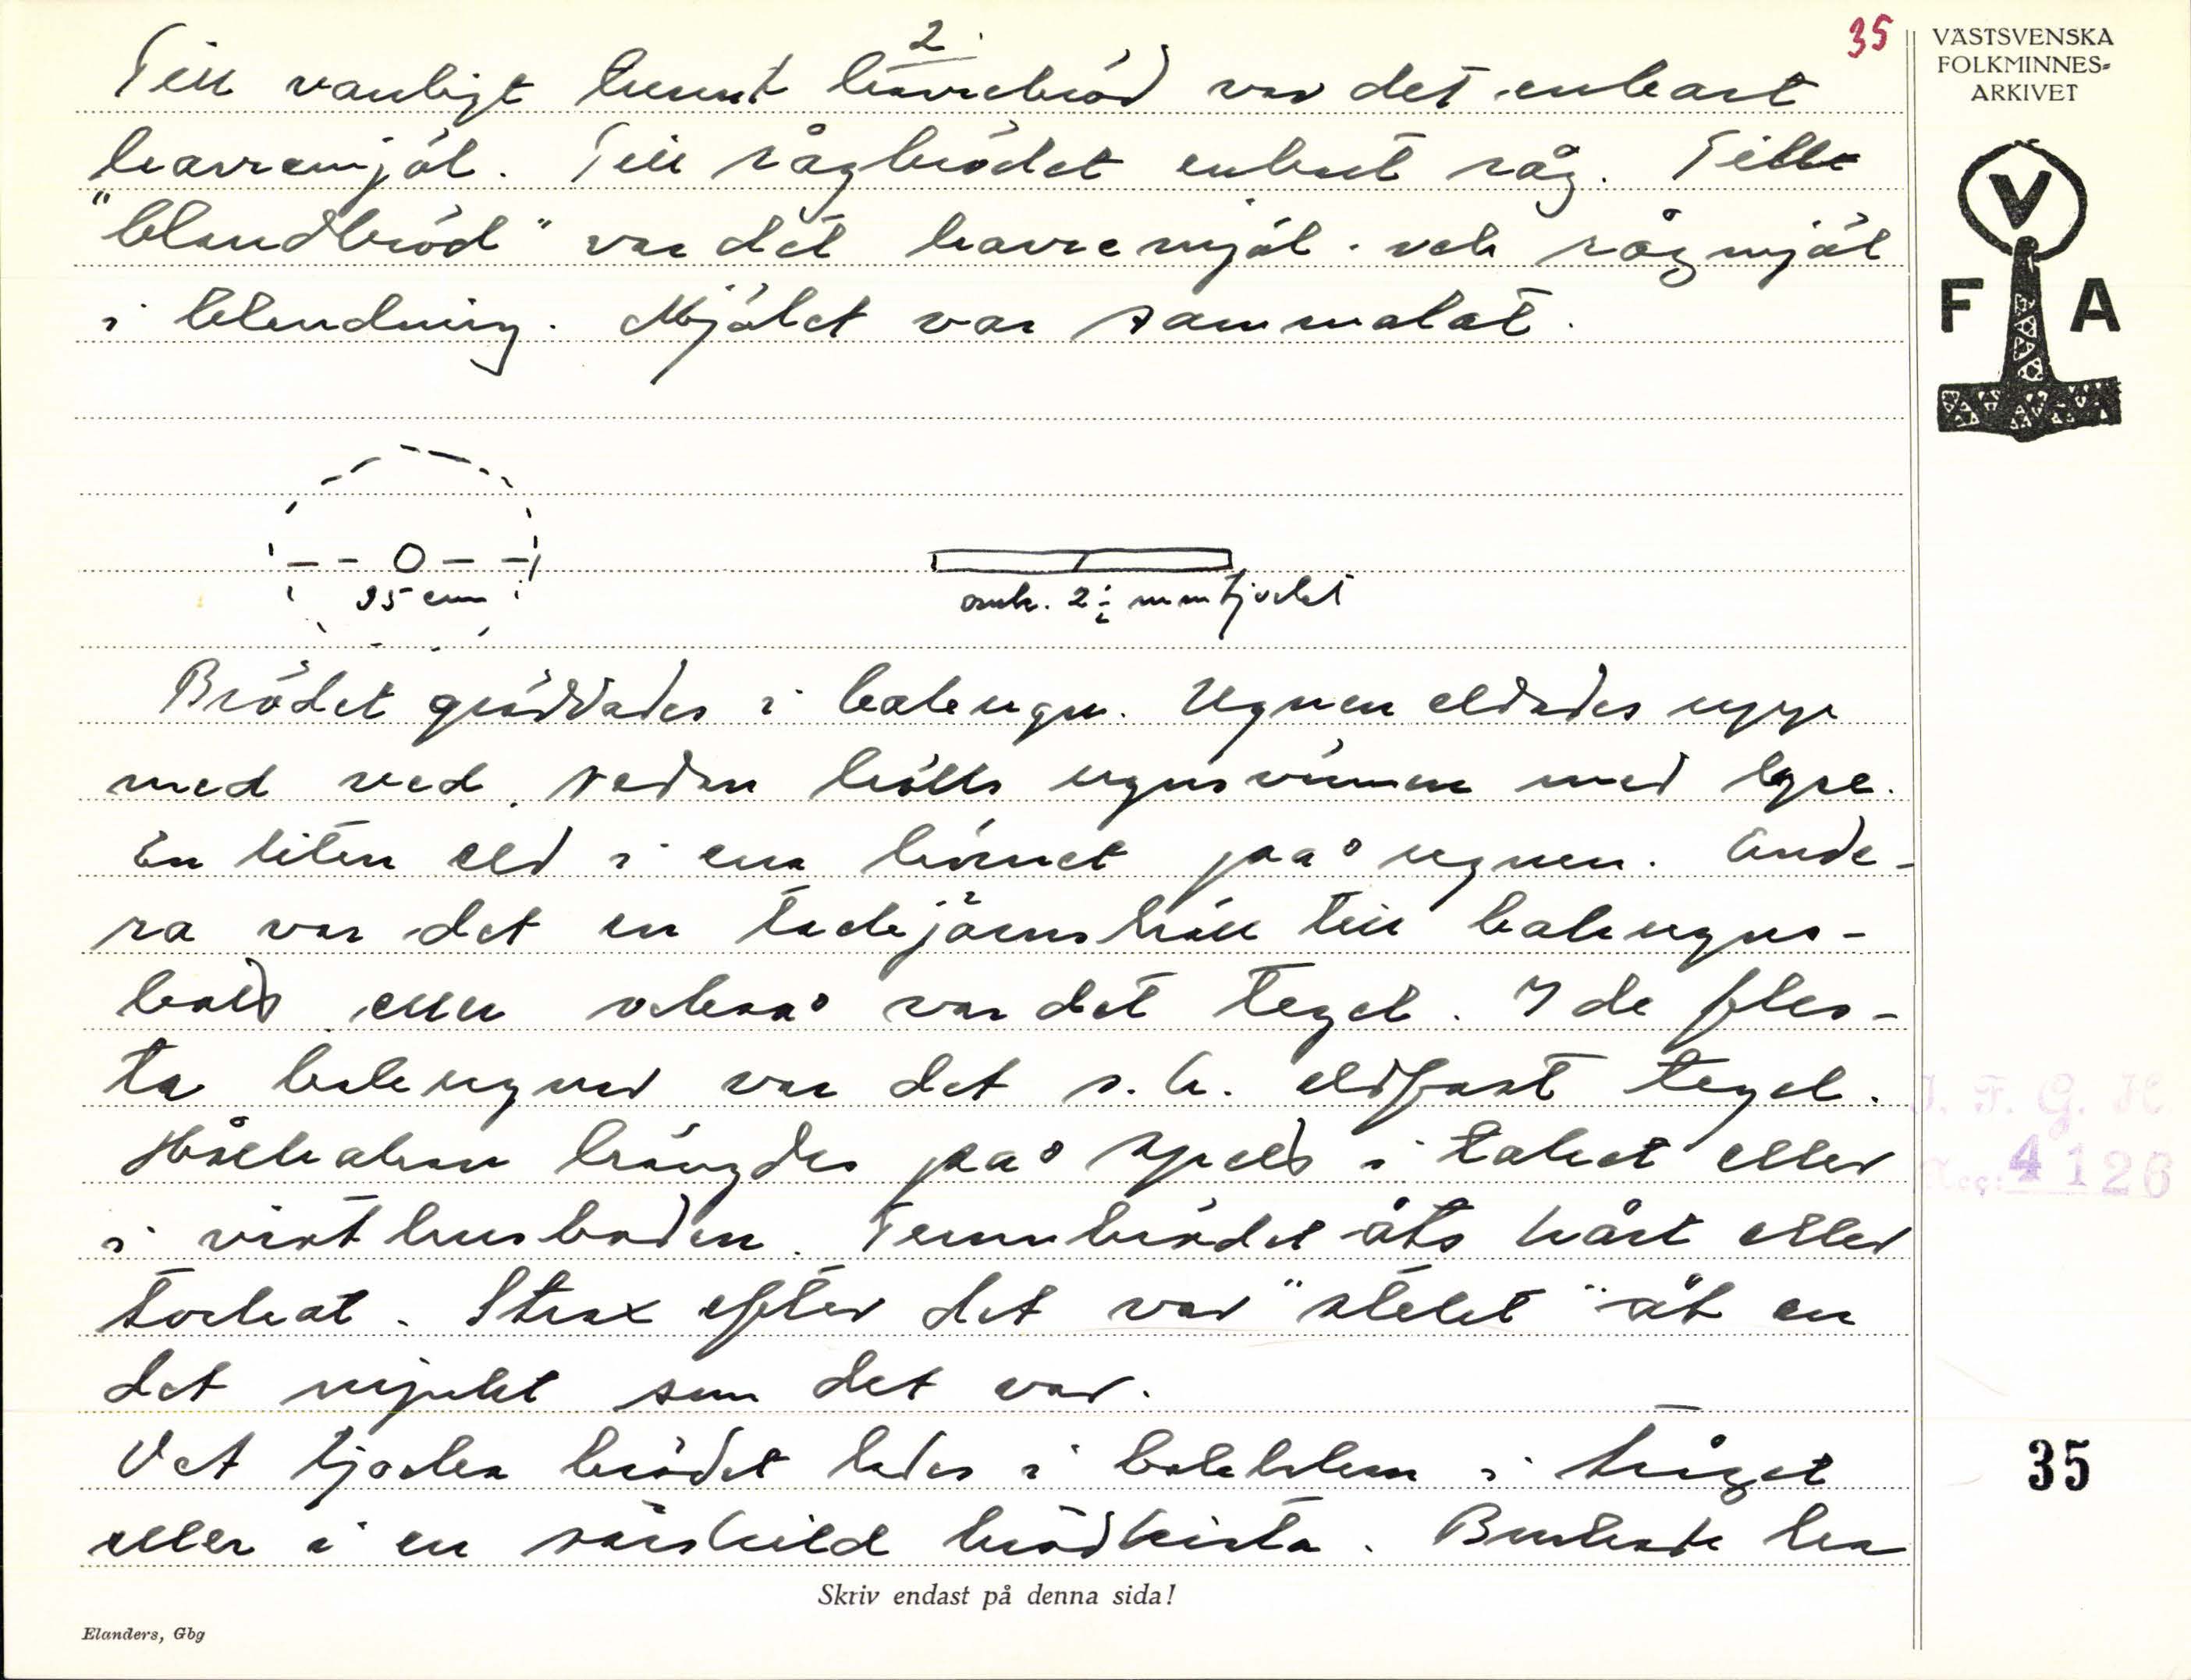 2
35
Till vanligt tunnt havrebröd var det enbart
havremjöl. Till rågbrödet enbart råg. Till
"blandbröd" var det havremjöl och rågmjöl
i blandning. Mjölet var sammalat.
35 cm
omk. 2½ mm tjockt
Brödet gräddades i bakugn. Ugnen eldades upp
med ved. Sedan hölls ugnsvärmen med lyse.
En liten eld i ena hörnet på ugnen. Ande-
ra var det en tackjärnshäll till bakugns-
häll men också var det tegel. I de fles-
ta bakugnar var det s.k. eldfast tegel.
Hålkakan hängdes på spett i taket eller
i visthusboden. Tunnbrödet åts hårt eller
torkat. Strax efter det var "stekt" åt en
det mjukt som det var.
Det tjocka brödet lades i in tråget
eller i en särskild brödkista. Brukade ha
Skriv endast på denna sida!
Elanders, Gbg
VÄSTSVENSKA
FOLKMINNES-
ARKIVET
V
F A
I. F. G. H.
Acc: 4126
35